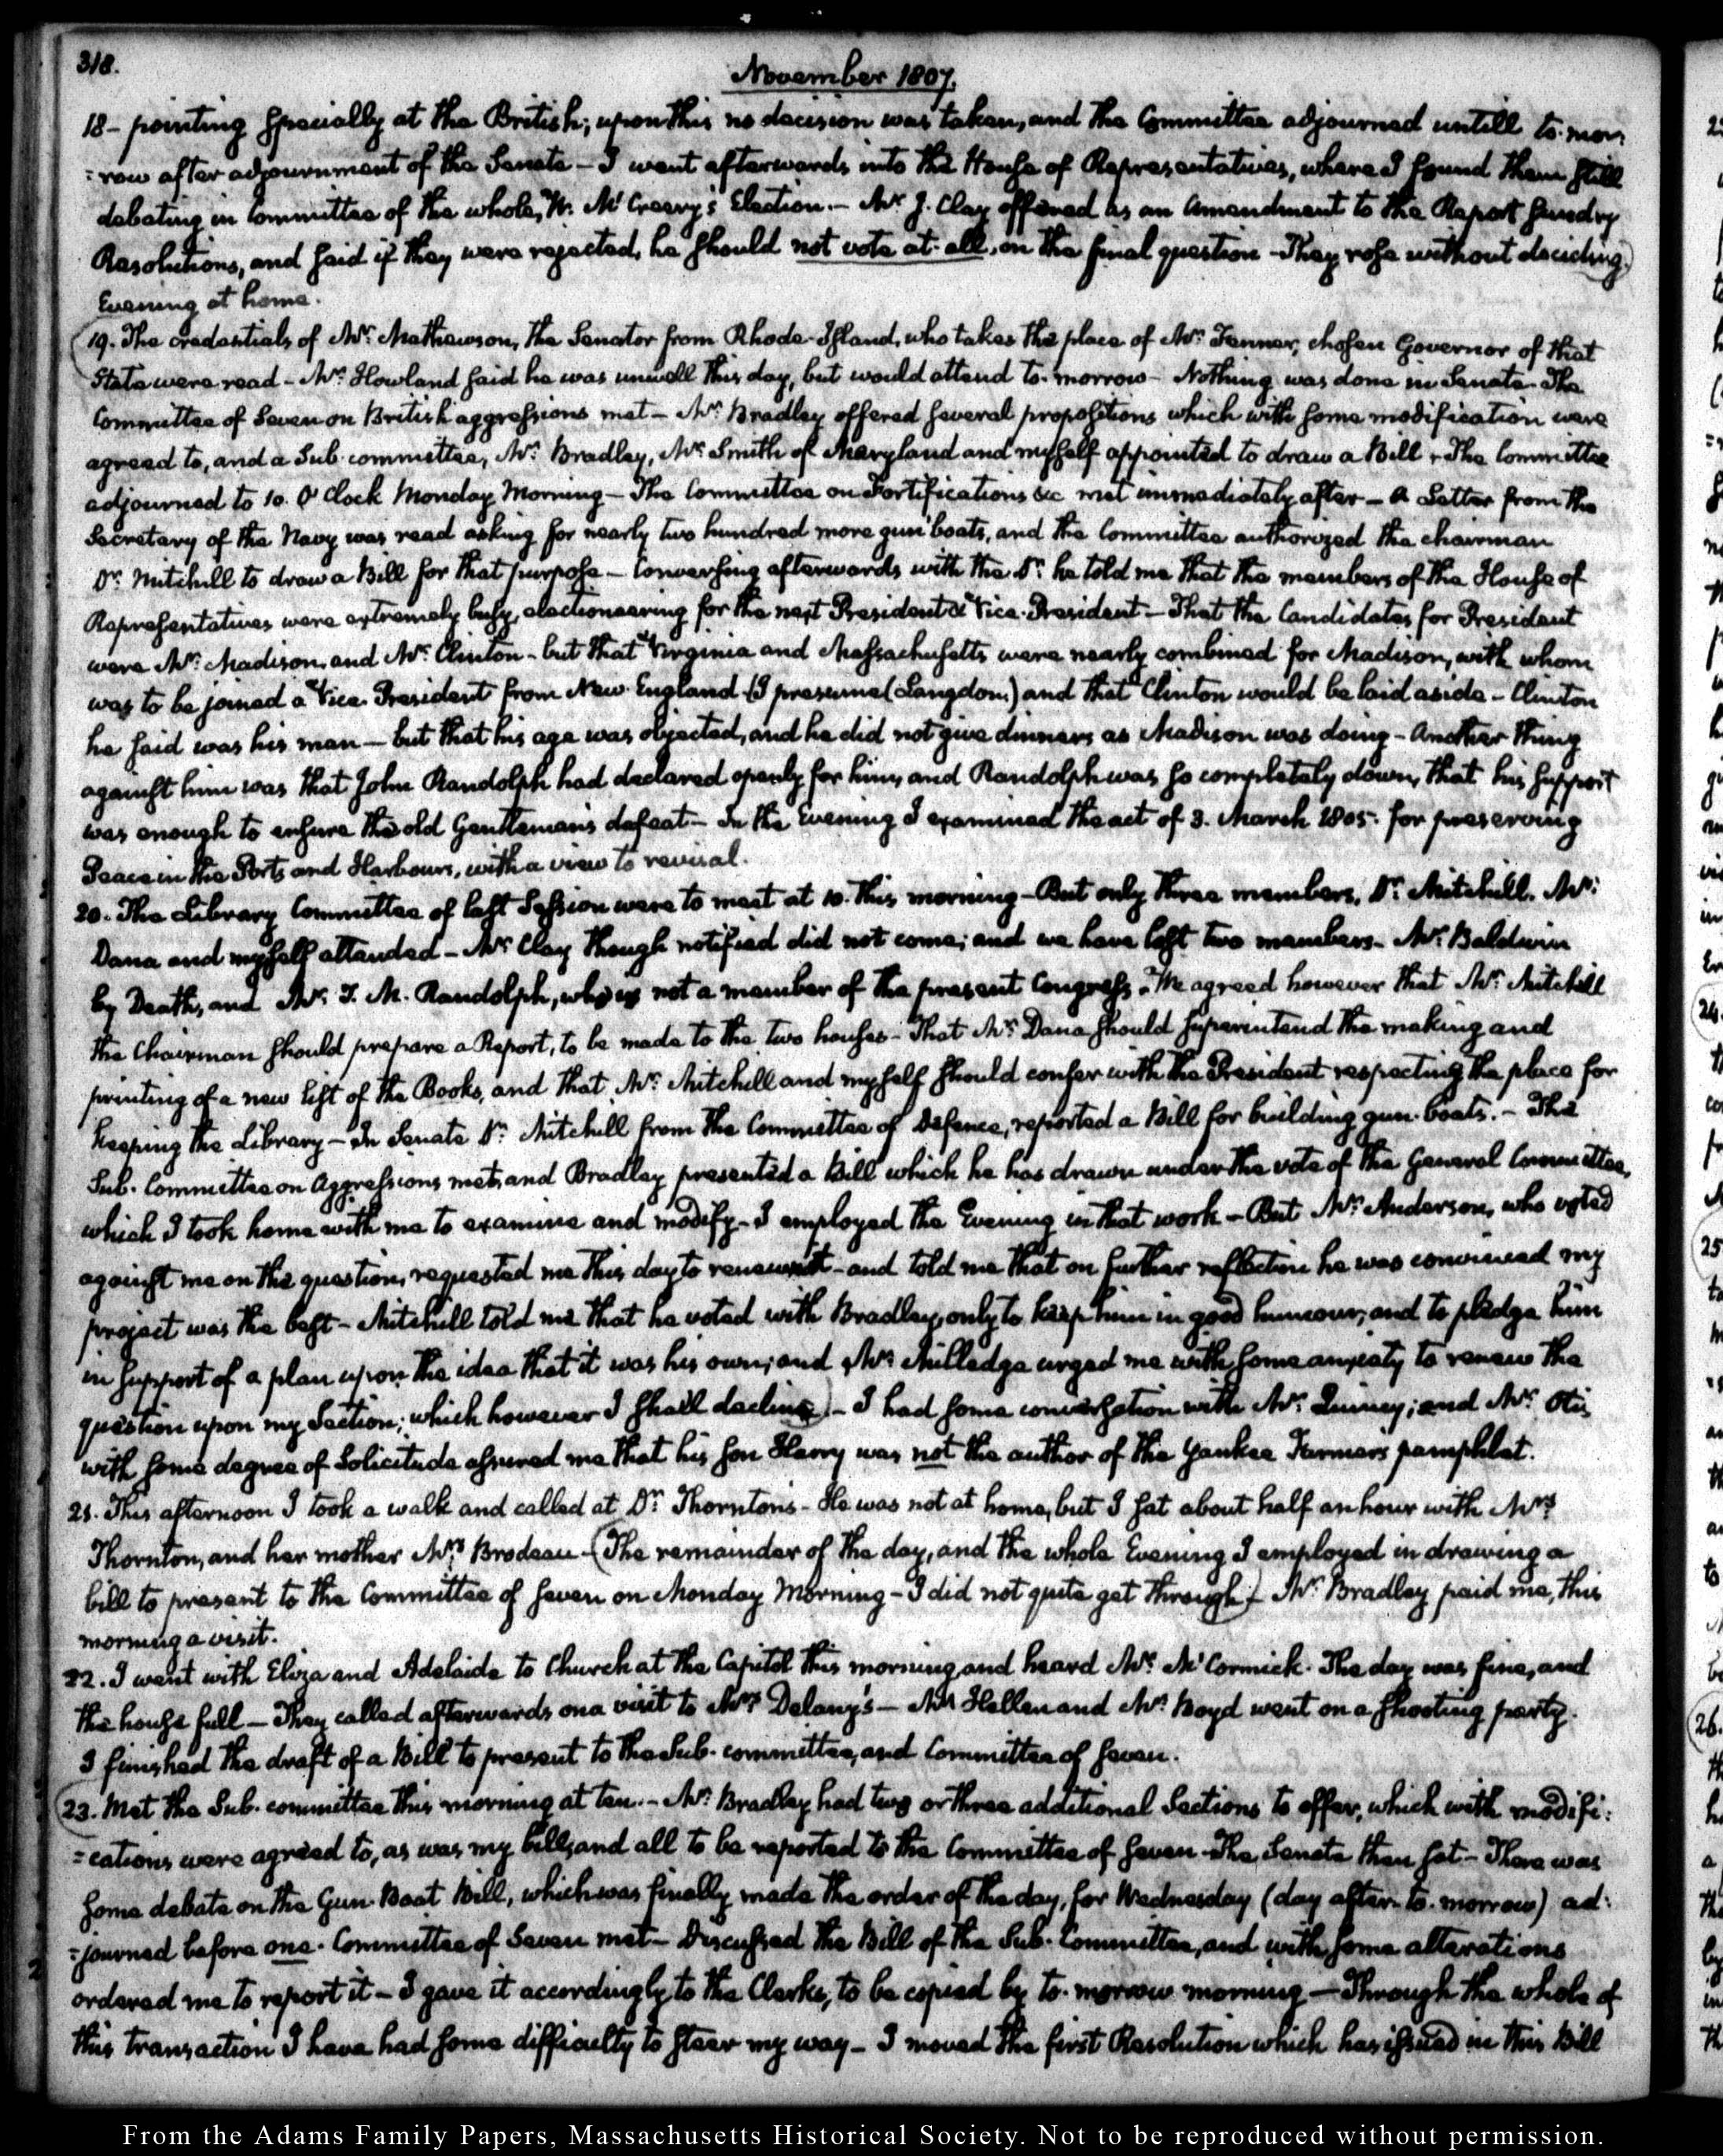 318.
November 1807.
18- pointing specially at the British; upon this no decision was taken, and the Committee adjourned untill to-mor-
=row after adjournment of the Senate - I went afterwards into the House of Representatives, where I found them still
debating in Committee of the whole, Mr. McCreery's Election.- Mr. J. Clay offered as an amendment to the Report sundry
Resolutions, and said if they were rejected, he should not vote at all, on the final question - They rose without deciding.)
Evening at home.
(19. The credentials of Mr. Mathewson, the Senator from Rhode-Island, who takes the place of Mr. Fenner, chosen Governor of that
State were read - Mr. Howland said he was unwell this day, but would attend to-morrow - Nothing was done in Senate. The
Committee of Seven on British aggressions met - Mr. Bradley offered several propositions which with some modification were
agreed to, and a Sub-committee, Mr. Bradley, Mr. Smith of Maryland and myself appointed to draw a Bill. The Committee
adjourned to 10. O'Clock Monday Morning - The Committee on Fortifications &c met immediately after - A Letter from the
Secretary of the Navy was read asking for nearly two hundred more gun-boats, and the Committee authorized the chairman
Dr. Mitchill to draw a Bill for that purpose - Conversing afterwards with the Dr. he told me that the members of the House of
Representatives were extremely busy, electioneering for the next President & Vice-President - That the Candidates for President
were Mr. Madison, and Mr. Clinton - but that Virginia and Massachusetts were nearly combined for Madison, with whom
was to be joined a Vice-President from New-England (I presume (Langdon) and that Clinton would be laid aside - Clinton
he said was his man - but that his age was objected, and he did not give dinners as Madison was doing - Another thing
against him was that John Randolph had declared openly for him, and Randolph was so completely down, that his support
was enough to ensure the old Gentleman's defeat - In the Evening I examined the act of 3. March 1805. for preserving
Peace in the Ports and Harbours, with a view to revisal.
20. The Library Committee of last Session were to meet at 10. this morning - But only three members, Dr. Mitchill. Mr.
Dana and myself attended - Mr. Clay though notified did not come; and we have lost two members - Mr. Baldwin
by Death, and Mr. T. M. Randolph, who is not a member of the present Congress. We agreed however that Mr. Mitchill
the Chairman should prepare a Report, to be made to the two houses - That Mr. Dana should superintend the making and
printing of a new list of the Books, and that Mr. Mitchill and myself should confer with the President respecting the place for
keeping the Library - In Senate Dr. Mitchill from the Committee of Defence, reported a Bill for building gun-boats. - The
Sub-Committee on Aggressions met, and Bradley presented a Bill which he has drawn under the vote of the General Committee,
which I took home with me to examine and modify - I employed the Evening in that work - But Mr. Anderson, who voted
against me on the question, requested me this day to renew it - and told me that on further reflection he was convinced my
project was the best - Mitchill told me that he voted with Bradley, only to keep him in good humour, and to pledge him
in support of a plan upon the idea that it was his own; and Mr. Milledge urged me with some anxiety to renew the
question upon my Section; which however I shall decline) - I had some conversation with Mr. Quincy; and Mr. Otis
with some degree of Solicitude assured me that his son Harry was not the author of the Yankee Farmer's pamphlet.
21. This afternoon I took a walk and called at Dr. Thornton's - He was not at home, but I sat about half an hour with Mrs.
Thornton, and her mother Mrs. Brodeau - (The remainder of the day, and the whole Evening I employed in drawing a
bill to present to the Committee of seven on Monday Morning - I did not quite get through.) Mr. Bradley paid me, this
morning a visit.
22. I went with Eliza and Adelaide to Church at the Capitol this morning, and heard Mr. McCormick. The day was fine, and
the house full - They called afterwards on a visit to Mrs. Delany's - Mr. Hellen and Mr. Boyd went on a shooting party.
I finished the draft of a Bill to present to the Sub-committee, and Committee of seven.
(23. Met the Sub-committee this morning at ten. - Mr. Bradley had two or three additional Sections to offer, which with modifi:
=cations were agreed to, as was my bill, and all to be reported to the Committee of seven. The Senate then sat - There was
some debate on the Gun-Boat Bill, which was finally made the order of the day, for Wednesday (day after-to-morrow) ad:
=journed before one. Committee of Seven met - Discussed the Bill of the Sub-Committee, and with some alterations
ordered me to report it - I gave it accordingly to the Clerks, to be copied by to-morrow morning - Through the whole of
this transaction I have had some difficulty to steer my way - I moved the first Resolution which has issued in this Bill
From the Adams Family Papers, Massachusetts Historical Society. Not to be reproduced without permission.